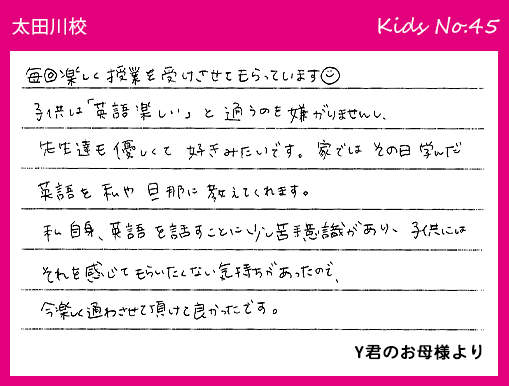 太田川校
Kids No.45
毎回楽しく授業を受けさせてもらっています☺
子供は「英語楽しい」と通うのを嫌がりませんし、
先生達も優しくて好きみたいです。家ではその日学んだ
英語を私や旦那に教えてくれます。
私自身、英語を話すことに少し苦手意識があり、子供には
それを感じてもらいたくない気持ちがあったので、
今楽しく通わさせて頂けて良かったです。
Y君のお母様より